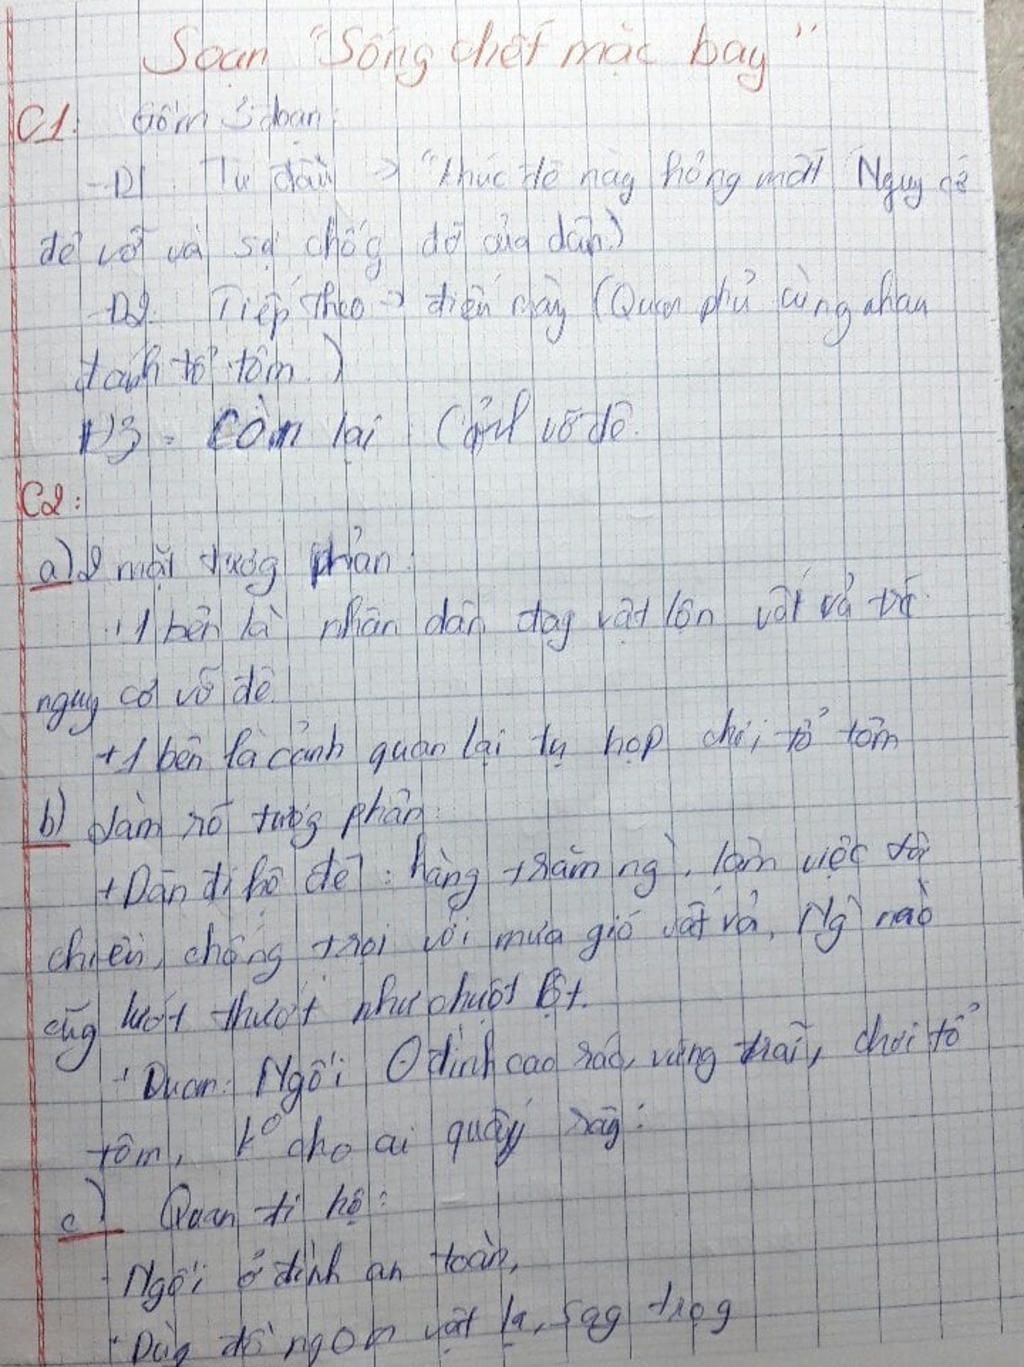 Soạn "Sống chết mặc bay"
C1: Gồm 3 đoạn:
- Đ1: Từ đầu → "khúc đê này hỏng mất (Nguy cơ
đê vỡ và sự chốg đỡ của dân)
- Đ2: Tiếp theo → điếu mày (Quan phủ cùng nhau
đánh tổ tôm.)
Đ3: Còn lại: Cảnh vỡ đê.
C2:
a) 2 mặt tươg phản:
+ 1 bên là nhân dân đag vật lộn vất vả trc
nguy cơ vỡ đê.
+ 1 bên là cảnh quan lại tụ họp chơi tổ tôm
b) Làm rõ tươg phản:
+ Dân đi hộ đê: hàng trăm ng', làm việc từ
chiều, chống trọi với mưa gió vất vả, Ng' nào
cũg lướt thướt như chuột lột.
+ Quan: Ngồi ở đình cao ráo, vững trãi, chơi tổ
tôm, k° cho ai quấy rầy:
c) Quan đi hộ:
- Ngồi ở đình an toàn,
- Dùg đồ ngon vật lạ, sag trọg